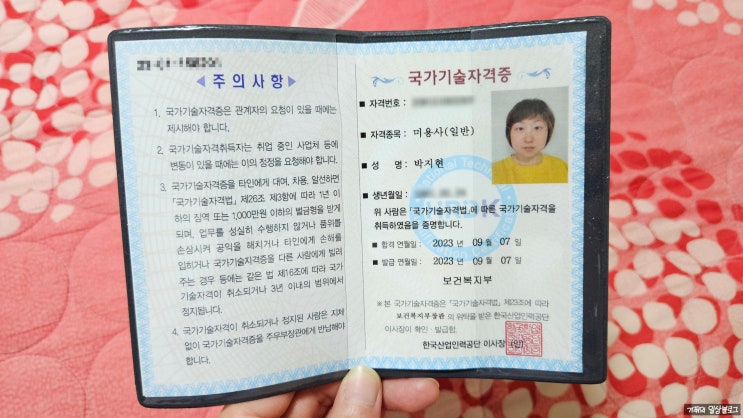 ◀ 주 의 사 항 ▶
1. 국가기술자격증은 관계자의 요청이 있을 때에는
제시해야 합니다.
2. 국가기술자격취득자는 취업 중인 사업체 등에
변동이 있을 때에는 이의 정정을 요청해야 합니다.
3. 국가기술자격증을 타인에게 대여, 차용, 알선하면
「국가기술자격법」 제26조 제3항에 따라 1년 이
하의 징역 또는 1,000만원 이하의 벌금형을 받게
되며, 업무를 성실히 수행하지 않거나 품위를
손상시켜 공익을 해치거나 타인에게 손해를
입히거나 국가기술자격증을 다른 사람에게 빌려
주는 경우 등에는 같은 법 제16조에 따라 국가
기술자격이 취소되거나 3년 이내의 범위에서
정지됩니다.
4. 국가기술자격이 취소되거나 정지된 사람은 지체
없이 국가기술자격증을 주무부장관에게 반납해야
합니다.
국가기술자격증
■ 자격번호 :
■ 자격종목 : 미용사(일반)
■ 성 명 : 박지현
■ 생년월일 :
위 사람은 「국가기술자격법」에 따른 국가기술자격을
취득하였음을 증명합니다.
■ 합격 연월일 : 2023 년 09 월 07 일
■ 발급 연월일 : 2023 년 09 월 07 일
보건복지부
※ 본 국가기술자격증은 「국가기술자격법」 제23조에 따라
보건복지부장관 의 위탁을 받은 한국산업인력공단
이사장이 확인·발급함.
한국산업인력공단 이사장 (인)